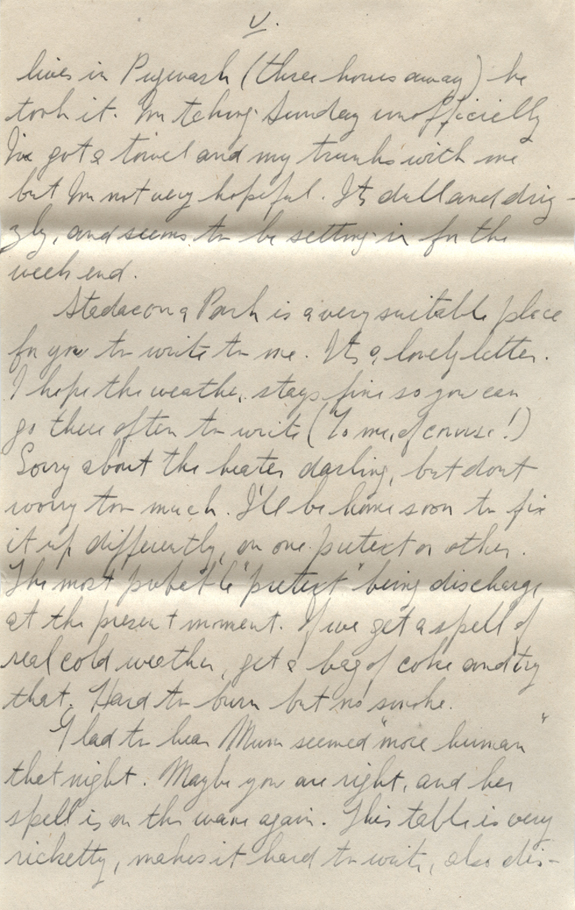 V.
lives in Pugwash (three hours away) he
took it. Im taking Sunday unofficially
I've got a towel and my trunks with me
but Im not very hopeful. Its dull and driz-
zly, and seems to be setting in for the
week end.
Stadacona Park is a very suitable place
for you to write to me. Its a lovely letter.
I hope the weather stays fine so you can
go there often to write (To me, of course!)
Sorry about the heater darling, but dont
worry too much. I'll be home soon to fix
it up differently, on one pretect or other.
The most probable "pretect" being discharge
at the present moment. If we get a spell of
real cold weather, get a bag of coke and try
that. Hard to burn but no smoke.
Glad to hear Mum seemed "more human"
that night. Maybe you are right, and her
spell is on the wane again. This table is very
ricketty, makes it hard to write, also dis-